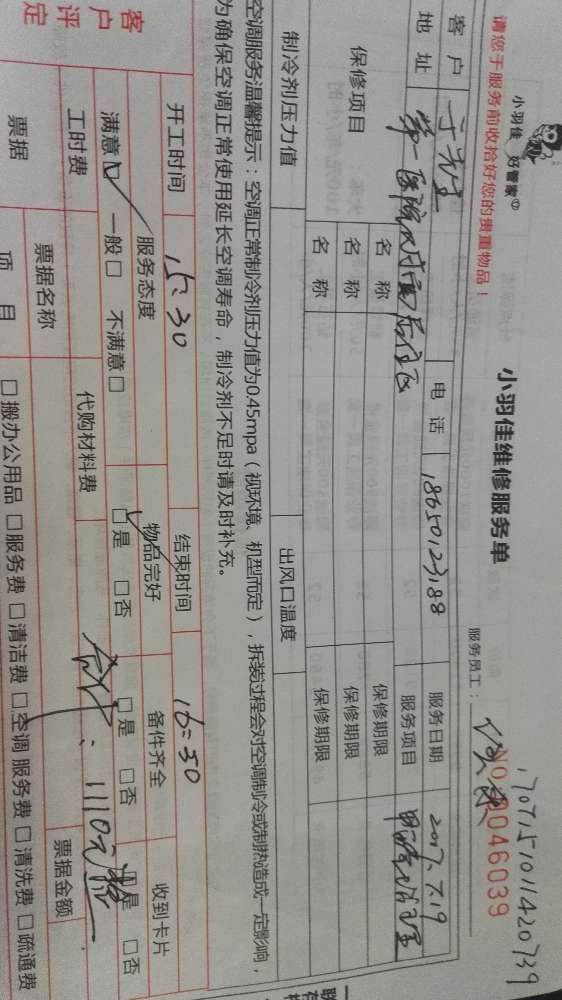 小羽佳 好管家
请您于服务前收拾好您的贵重物品！
小羽佳维修服务单
17071510111420739
服务员工：
NO.0046039
客户
电话 18650123188
服务日期 2017.7.19
地址 第一医院对面
服务项目
保修项目
名称 保修期限
名称 保修期限
名称 保修期限
制冷剂压力值 出风口温度
空调服务温馨提示：空调正常制冷剂压力值为0.45mpa（视环境、机型而定），拆装过程会对空调制冷或制热造成一定影响，
为确保空调正常使用延长空调寿命，制冷剂不足时请及时补充。
开工时间 15:30 结束时间 16:30
客户评定
服务态度 物品完好 备件齐全 收到卡片
满意☑ 一般□ 不满意□ ☑是 □否 □是 □否 □是 □否
工时费 代购材料费 合计：110元
票据 票据名称 票据金额
项目 □搬办公用品 □服务费 □清洁费 □空调服务费 □清洗费 □疏通费